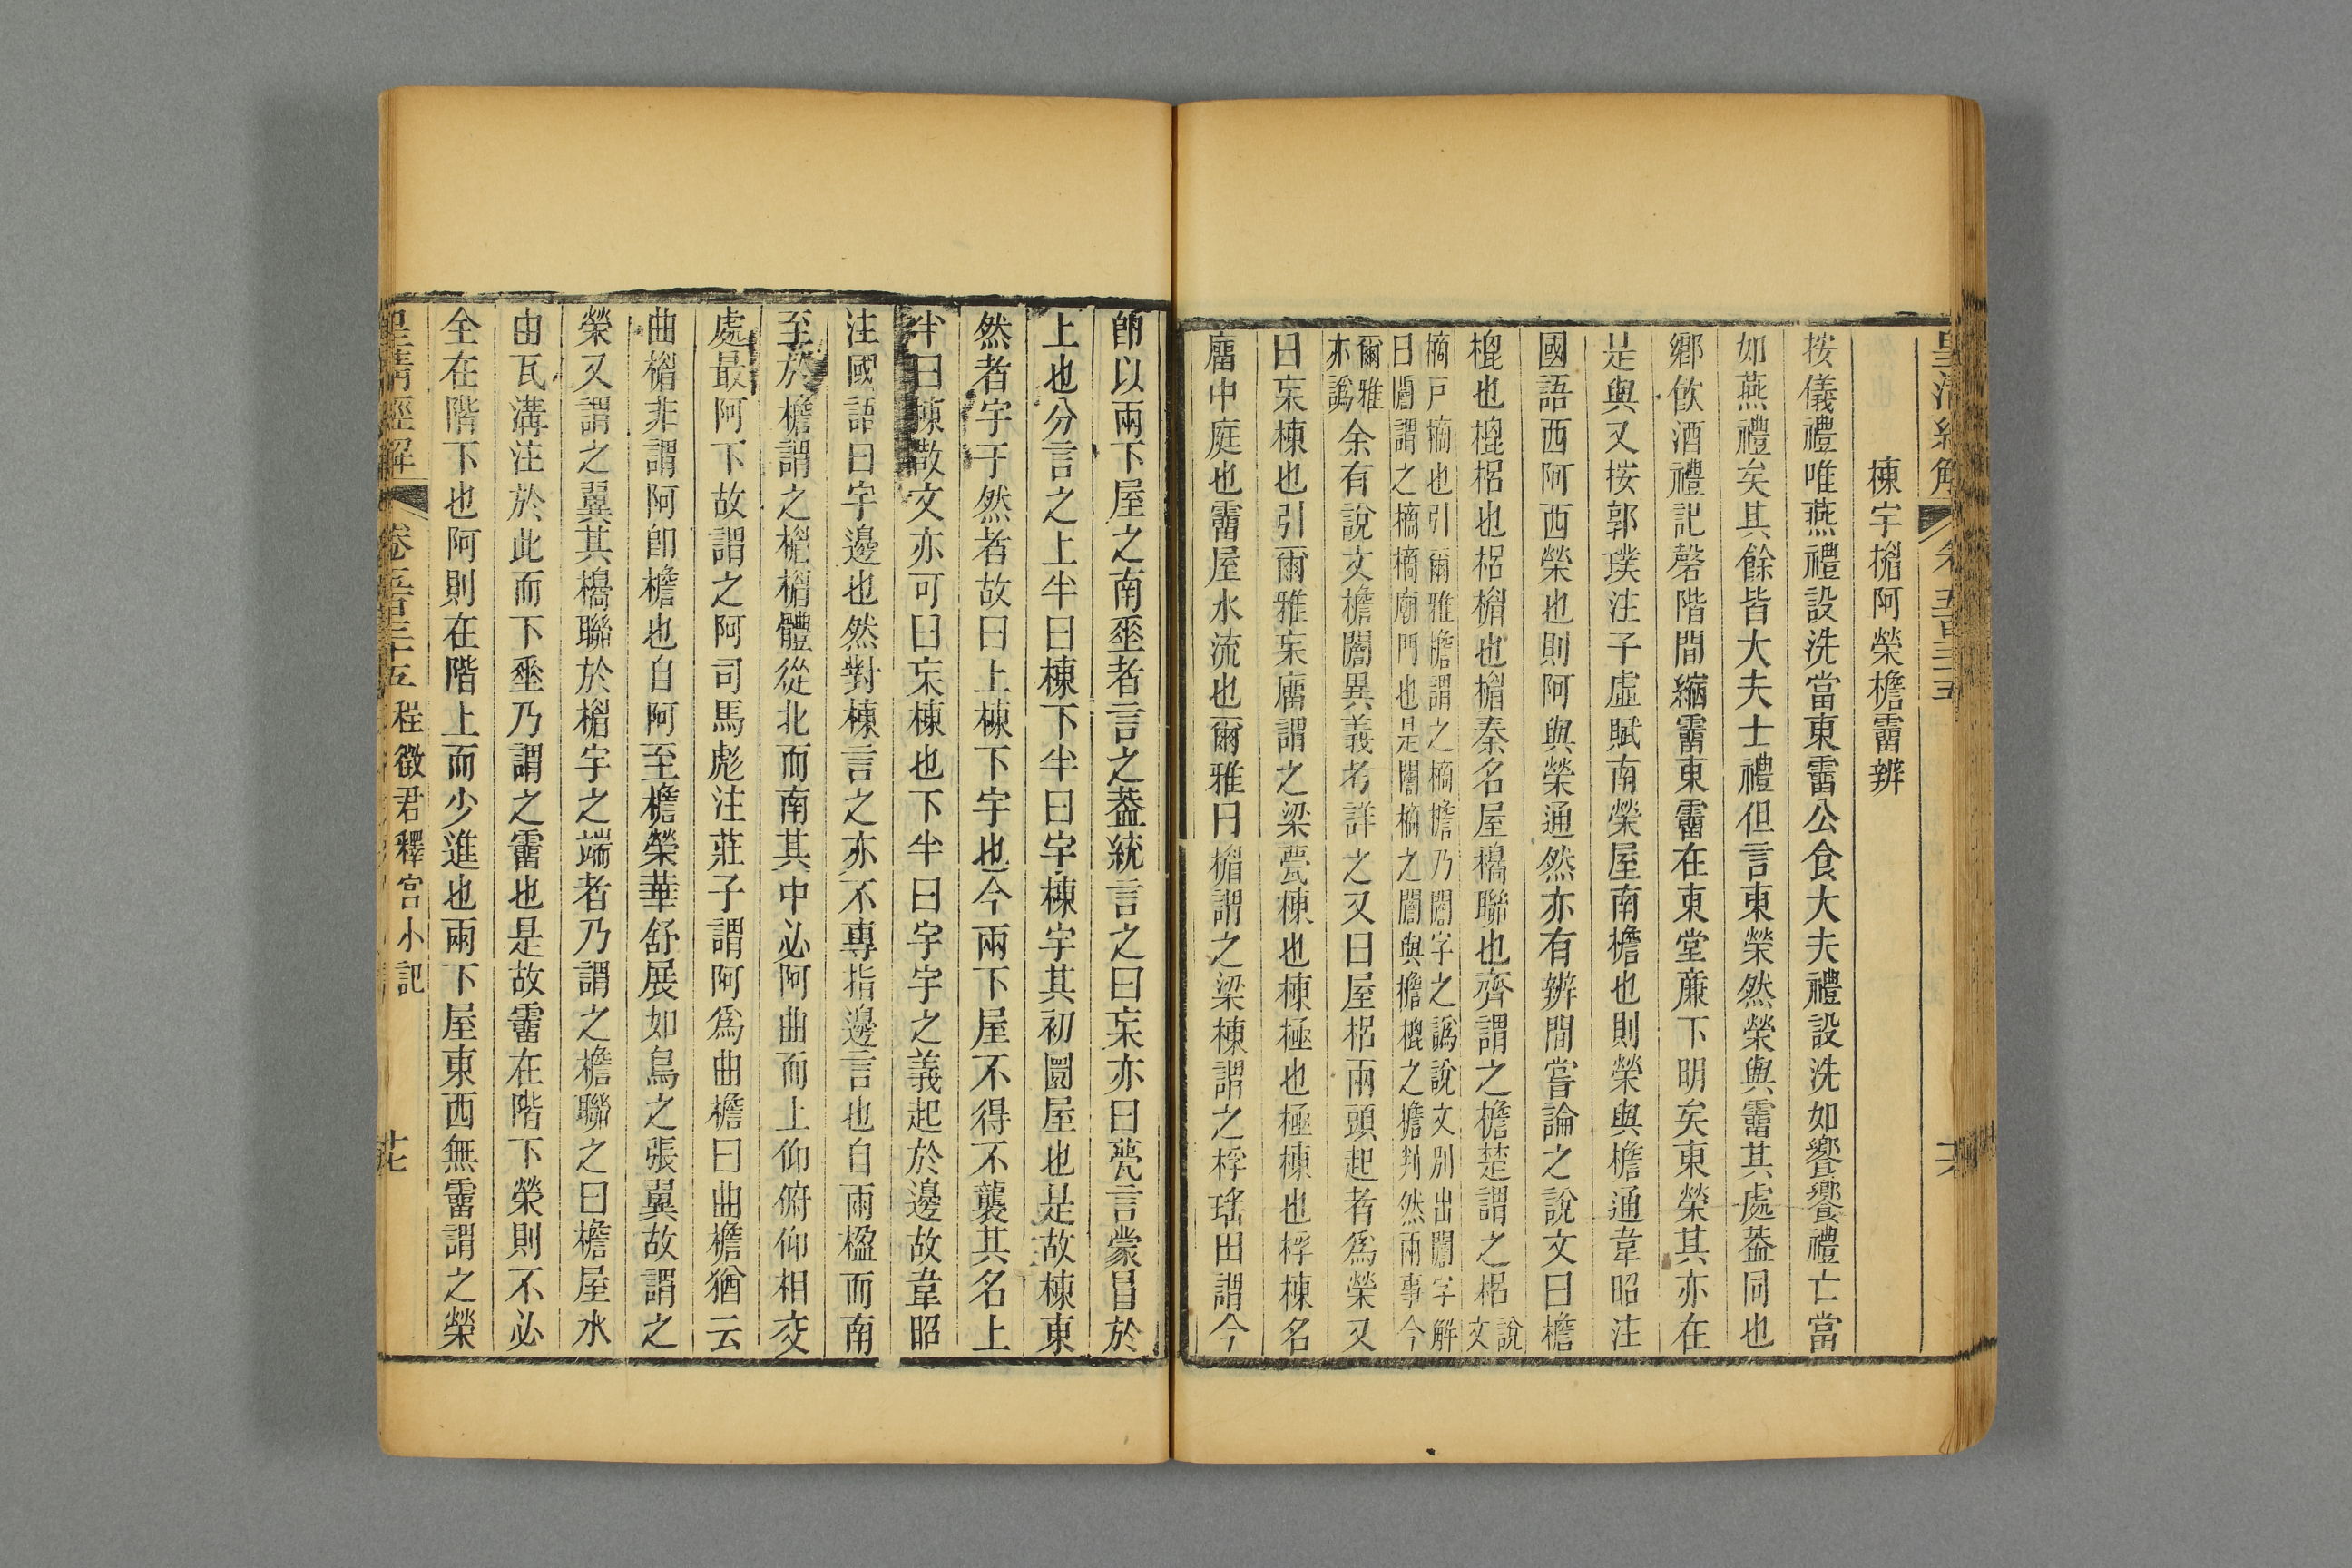 皇清經解 卷五百三十五
棟宇楣阿榮檐霤辨
按儀禮唯燕禮設洗當東霤公食大夫禮設洗如饗饗禮亡當
如燕禮矣其餘皆大夫士禮但言東榮然榮與霤其處葢同也
鄉飲酒禮記磬階間縮霤東霤在東堂廉下明矣東榮其亦在
是與又按郭璞注子虛賦南榮屋南檐也則榮與檐通韋昭注
國語西阿西榮也則阿與榮通然亦有辨間嘗論之說文曰檐
㮰也㮰梠也梠楣也楣秦名屋櫋聯也齊謂之檐楚謂之梠說文
樀戸樀也引爾雅檐謂之樀檐乃閻字之譌說文別出閻字解
曰閻謂之樀樀廟門也是閻樀之閻與檐㮰之檐判然兩事今
爾雅亦譌余有說文檐閻異義考詳之又曰屋梠兩頭起者爲榮又
曰杗棟也引爾雅杗廇謂之梁甍棟也棟極也極棟也桴棟名
廇中庭也霤屋水流也爾雅曰楣謂之梁棟謂之桴瑤田謂今
卽以兩下屋之南埀者言之葢統言之曰杗亦曰甍言蒙冒於
上也分言之上半曰棟下半曰宇棟宇其初圜屋也是故棟東
然者宇于然者故曰上棟下宇也今兩下屋不得不襲其名上
半曰棟散文亦可曰杗棟也下半曰宇宇之義起於邊故韋昭
注國語曰宇邊也然對棟言之亦不專指邊言也自兩楹而南
至於檐謂之楣楣體從北而南其中必阿曲而上仰俯仰相交
處最阿下故謂之阿司馬彪注莊子謂阿爲曲檐曰曲檐猶云
曲楣非謂阿卽檐也自阿至檐榮華舒展如鳥之張翼故謂之
榮又謂之翼其櫋聯於楣宇之端者乃謂之檐聯之曰檐屋水
由瓦溝注於此而下埀乃謂之霤也是故霤在階下榮則不必
全在階下也阿則在階上而少進也兩下屋東西無霤謂之榮
皇清經解 卷五百三十五 程徵君釋宮小記 十七